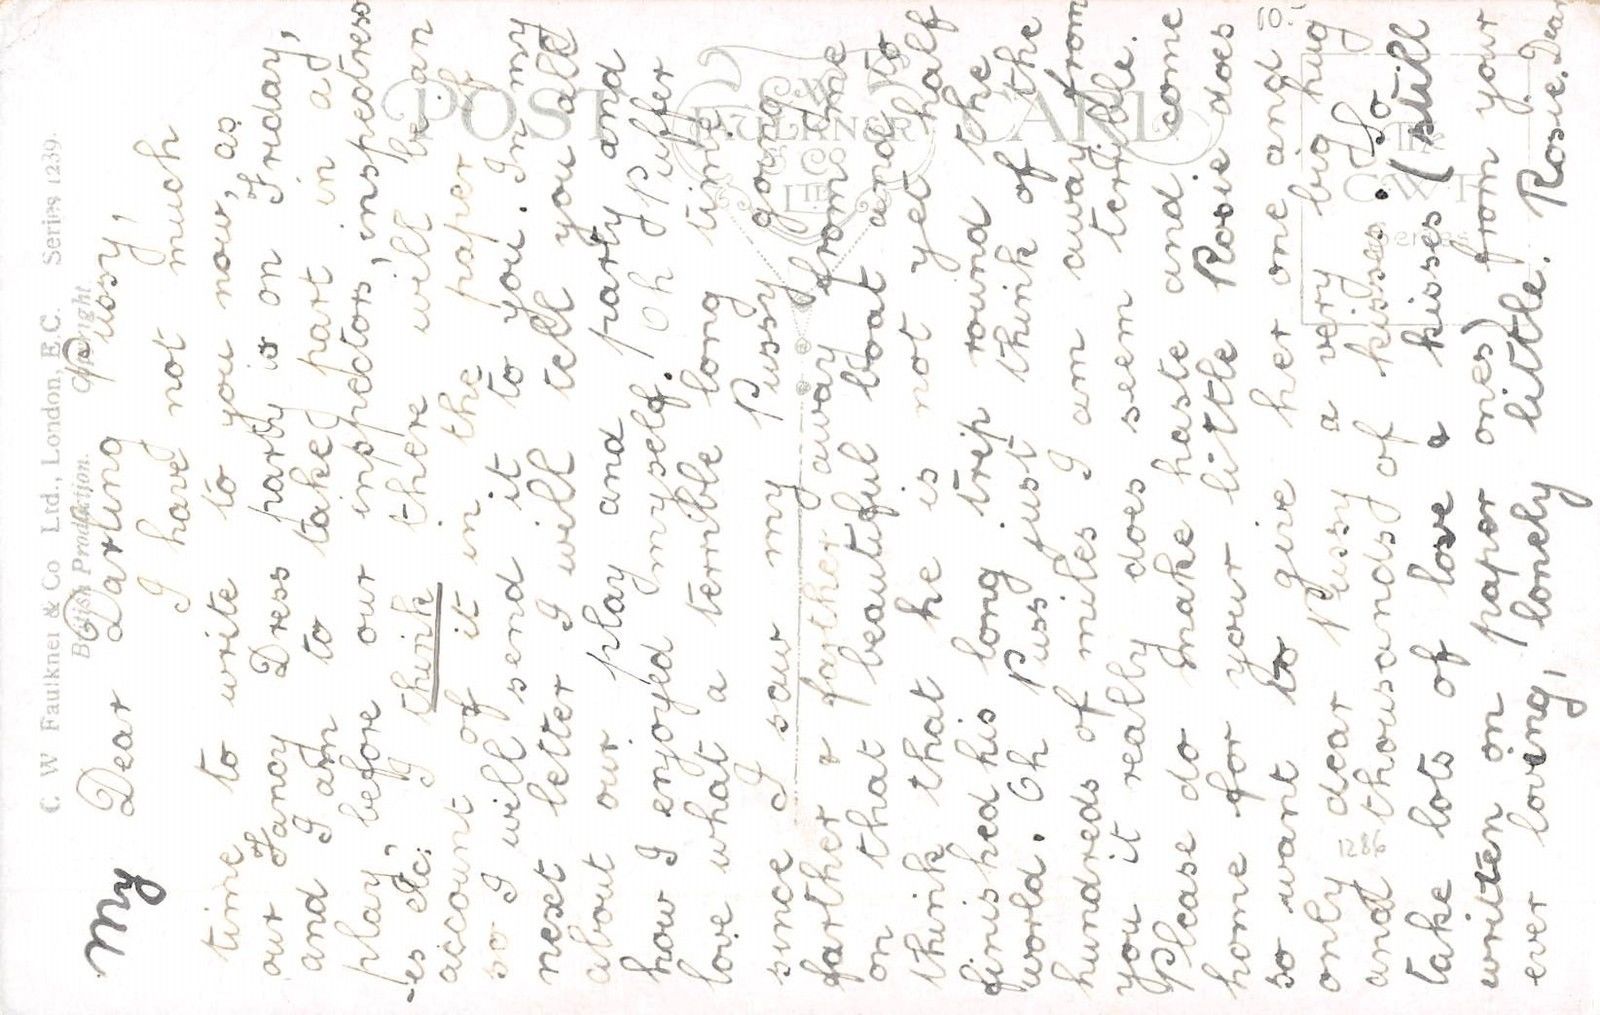 C. W Faulkner & Co Ltd., London, E.C. Series 1239.
British Production. Copyright.
POST CARD
FAULKNER
& Co
LTD
The
C.W.F.
Series
My Dear Darling Pussy!
I have not much
time to write to you now, as
our Fancy Dress party is on Friday,
and I am to take part in a
play before our inspectors, inspectress
-es etc: I think there will be an
account of it in the paper if
so I will send it to you. In my
next letter I will tell you all
about our play and party and
how I enjoyed myself. Oh Puffer
love what a terrible long time
since I saw my Pussy going
farther & farther away from me
on that beautiful boat and to
think that he is not yet half
finished his long trip round the
world. Oh Puss just think of the
hundreds of miles I am away from
you it really does seem terrible.
Please do make haste and come
home for your little Rosie does
so want to give her one and
only dear Pussy a very big hug
and thousands of kisses. So
take lots of love & kisses (still
written on paper ones) from your
ever loving, lonely little. Rosie. Dear
1286